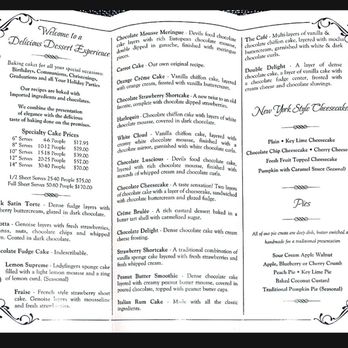 Welcome to a
Delicious Dessert Experience
Baking cakes for all your special occasions:
Birthdays, Communions, Christenings,
Graduations and all Your Holidays
Our recipes are baked with
imported ingredients and chocolates.
We combine the presentation
of elegance with the delicious
taste of baking done on the premises.
Specialty Cake Prices
6" Serves 4-6 People $17.95
8" Serves 10-12 People
9" Serves 12-15 People
10" Serves 15-20 People
12" Serves 20-25 People
14" Serves 30-40 People $70.00
1/2 Sheet Serves 25-40 People $75.00
Full Sheet Serves 50-80 People $170.00
k Satin Torte - Dense fudge layers with
berry buttercreams, glazed in dark chocolate.
otta - Genoise layers with fresh strawberries,
nuts, chocolate chips and whipped
Coated in dark chocolate.
ocolate Fudge Cake - Indescribable.
Lemon Supreme - Ladyfingers sponge cake
filled with a light lemon mousse and a ring
of lemon curd. (Seasonal)
Fraise - French style strawberry short
cake. Genoise layers with mousseline
and fresh straw
Chocolate Mousse Meringue - Devils food chocolate
cake layers with rich European chocolate mousse,
double dipped in ganache, finished with meringue
pieces.
Carrot Cake - Our own original recipe.
Orange Crème Cake - Vanilla chiffon cake, layered
with orange cream, finished with vanilla buttercream.
Chocolate Strawberry Shortcake - A new twist to an old
favorite, complete with chocolate dipped strawberries.
Harlequin - Chocolate chiffon cake with layers of white
chocolate mousse, covered in dark chocolate.
White Cloud - Vanilla chiffon cake, layered
with cream and chocolate mousse, finished with
mirror, garnished with white chocolate curls.
Chocolate Luscious - Devils food chocolate cake,
layered with rich chocolate mousse, finished with
mounds of whipped cream and chocolate curls.
Chocolate Cheesecake - A taste sensation! Two layers
of chocolate cake with a layer of cheesecake, sandwiched
with chocolate fudge and glazed fudge.
Crème Brulée - A rich custard dessert baked in a
butter tart shell with caramelized sugar.
Chocolate Delight - Dense chocolate cake with cream
cheese frosting.
Strawberry Shortcake - A traditional combination of
vanilla sponge cake layered with fresh strawberries and
fresh whipped cream.
Peanut Butter Smoothie - Dense chocolate cake
layered with creamy peanut butter mousse, covered
in chocolate, topped with peanut butter cups.
Italian Rum Cake - Made with all the classic
ingredients.
The Café - Multi-layers of vanilla &
chocolate chiffon cake, layered with mocha
buttercream, garnished with white & dark
chocolate curls.
Double Delight - A layer of dense
chocolate cake, a layer of vanilla cake with
a chocolate fudge center, frosted with
cream cheese and shavings.
New York Style Cheesecake
Plain • Key Lime
Chocolate Chip Cheesecake • Cherry Cheese
Fresh Fruit Topped Cheesecake
Pumpkin with Caramel Sauce (Seasonal)
Pies
All of our pie crusts are deep dish, butter enriched a
handmade for a traditional presentation.
Sour Cream Apple Walnut
Apple, Blueberry or Cherry Crumb
Peach Pie • Key Lime Pie
Baked Coconut Custard
Traditional Pumpkin Pie (Seasonal)